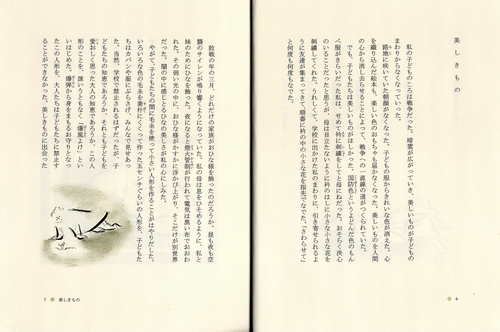 美しきもの
私の子どものころは戦争だった。暗雲が広がっていき、美しいものが子どもの
まわりからなくなっていった。
路地に咲いていた朝顔がなくなった。子どもの服からきれいな色が消えた。心
を織り込んだ絵本も、美しい色のおもちゃも届かなくなった。美しいものを人間
の心から消し去らせることによって、戦争への一直線の道がつくられていった。
でも、子どもたちは美しいものがほしかった。国防色というよどんだ色のもん
ぺ服がきらいだった私は、せめて衿に刺繍をしてと母にねだった。おそらく決心
のいることだったと思うが、母は目立たないように衿のはしに小さな小さな花を
刺繍してくれた。うれしくて、学校に出かけた私のまわりに、引き寄せられるよ
うに友達が集まってきて、順番に衿の中の小さな花を指先でなでた。「さわらせて」
と何度も何度もなでた。
6
敗戦の年の三月、どれだけの家族がおひな様を飾ったのだろうか。昼も夜も空
襲のサイレンが鳴り響くようになっていた。私の母は息をひそめるように、私と
妹のためにひなを飾った。夜になると燈火管制が行われて電気は黒い布でおおわ
れた。その弱い光の中に、おひな様がかすかに浮かび上がり、そこだけが別世界
だった。闇の中に感じとるようなひなの美しさが私の心にしみた。
やがて、子どもたちの間に毛糸を使って小さい人形を作ることがはやりだした。
いろいろな色の毛糸を器用にくくった五センチぐらいの人形を、子どもた
ちはカバンや服にぶらさげ、みんなで見せあっ
た。当然、学校で禁止されるはずだったが、子
どもたちの知恵であろうか、それとも子どもを
愛おしく思った大人の知恵であろうか、この人
形のことを、誰いうともなく「爆弾よけ」とい
いはじめた。爆弾から身をまもるお守りとなっ
たこの人形を、大人たちは子どもたちに禁止す
ることができなかった。美しきものに出会った
7 美しきもの